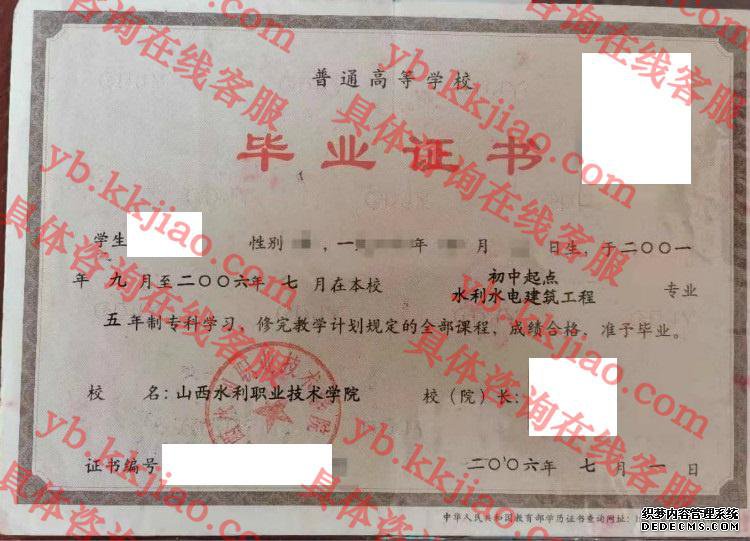 普通高等学校
毕业证书
学生 性别 ,一 年 月 日生,于二〇〇一
年 九 月至二〇〇六年 七 月在本校 初中起点
水利水电建筑工程 专业
五 年制专科学习,修完教学计划规定的全部课程,成绩合格,准予毕业。
校 名:山西水利职业技术学院 校(院)长:
证书编号 二〇〇六年 七 月 一 日
中华人民共和国教育部学历证书查询网址:
具体咨询在线客服
yb.kkjiao.com
具体咨询在线客服
yb.kkjiao.com
具体咨询在线客服
yb.kkjiao.com
具体咨询在线客服
织梦内容管理系统
DEDECMS.COM